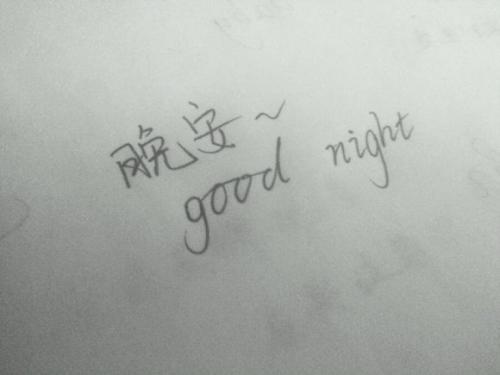 晚安~
good night